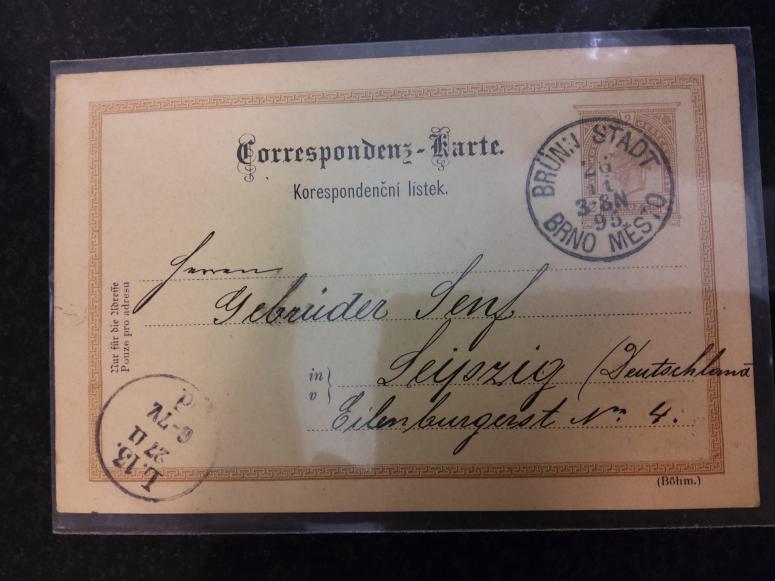 Correspondenz-Karte.
Korespondenční lístek.
BRÜNN STADT
26
11
3-8N
95
BRNO MĚSTO
Herren
Gebrüder Senf
in Leipzig (Deutschland
v Eilenburgerst No. 4.
Nur für die Adresse
Pouze pro adresu
L.13.
27 11
6-7V
(Böhm.)